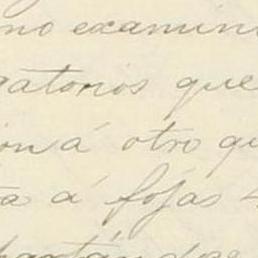 no examin
gatorios que
ión á otro qu
ta á fojas 4